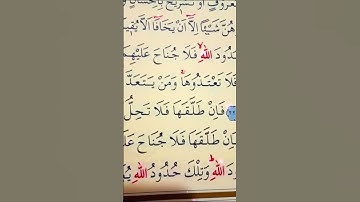 مَعْرُوفٍ اَوْ تَسْرِيحٌ بِاِحْسَانٍ
هُنَّ شَيْئًا اِلَّٓا اَنْ يَخَافَٓا اَلَّا يُقِيمَا
حُدُودَ اللّٰهِۙ فَلَا جُنَاحَ عَلَيْهِمَا
فَلَا تَعْتَدُوهَاۚ وَمَنْ يَتَعَدَّ
فَاِنْ طَلَّقَهَا فَلَا تَحِلُّ
فَاِنْ طَلَّقَهَا فَلَا جُنَاحَ عَلَ
دَ اللّٰهِۜ وَتِلْكَ حُدُودُ اللّٰهِ يُبَ